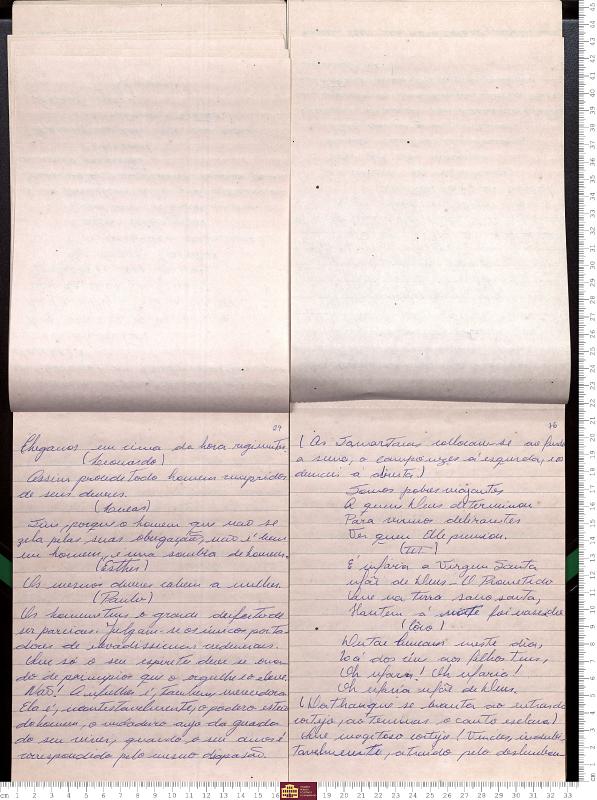 29
Chegamos em cima da hora regimentar.
(Leonardo)
Assim procede todo homem cumpridor
de seus deveres.
(Lucas)
Sim, porque o homem que não se
zela pelas suas obrigações, não é bem
um homem, é uma sombra de homem.
(Esther)
Os mesmos deveres cabem a mulher.
(Paulo)
Os homens tem o grande defeito de
ser parciais. Julgam-se os únicos porta-
dores de
Que só o seu espirito deve se
do de principios que o orgulhe e o eleve.
Não! A mulher é, tambem merecedora
Ela é, incontestavelmente, o poderoso
do homem, o verdadeiro anjo da guarda
do seu viver, quando o seu amor é
correspondido pelo mesmo diapasão.
16
(As Samaritanas collocam-se ao fundo
a sena, o camponezes á esquerda, e os
demais a direita)
Somos pobres viajantes
A quem Deus determinou
Para virmos delirantes
Ver quem Elle
(III)
É Maria a Virgem Santa
Mãe de Deus. O Prometido
Que na terra santa,
Hontem á noite foi nascido
(Côro)
neste dia,
Lá dos céus aos filhos teus,
Oh Maria! Oh Maria!
Oh Maria Mãe de Deus.
(Nathan que se levanta ao entrar do
cortejo, ao terminar o canto exclama)
Que magestoso cortejo! Vindes,
atraido pelo